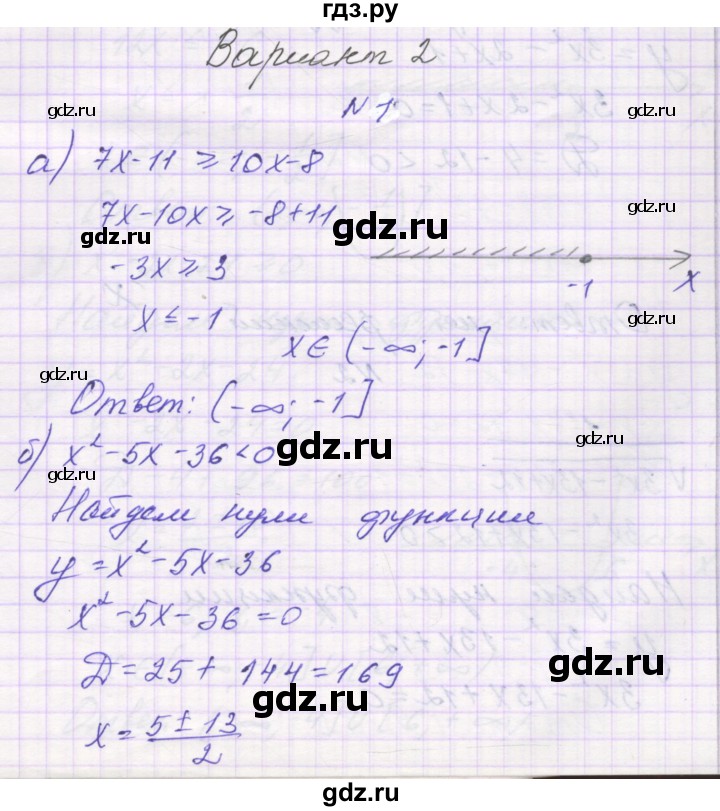 гдз.ру
Вариант 2
N 1
а) 7x-11 ⩾ 10x-8
7x-10x ⩾ -8+11
-3x ⩾ 3
-1 x
x ≤ -1
x ∈ (-∞; -1]
Ответ: (-∞; -1]
б) x²-5x-36<0
Найдем нули функции
y = x²-5x-36
x²-5x-36=0
Д=25+144=169
x = (5±13)/2
gdz.ru
gdz.ru
gdz.ru
gdz.ru
gdz.ru
gdz.ru
gdz.ru
gdz.ru
gdz.ru
gdz.ru
gdz.ru
gdz.ru
gdz.ru
gdz.ru